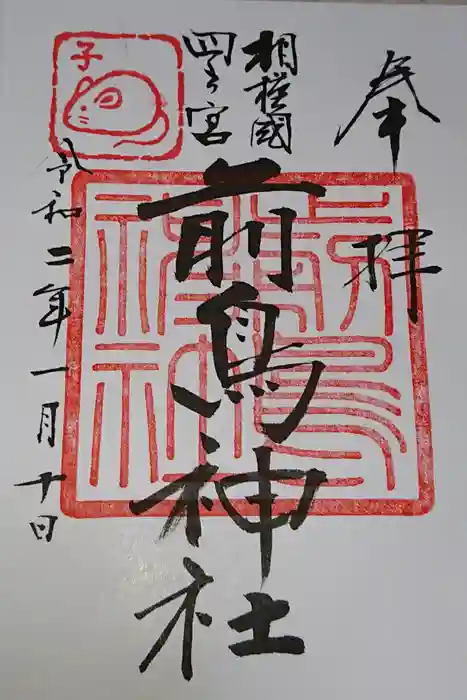 奉拝
相模國
四之宮
前鳥神社
子
令和二年一月十日